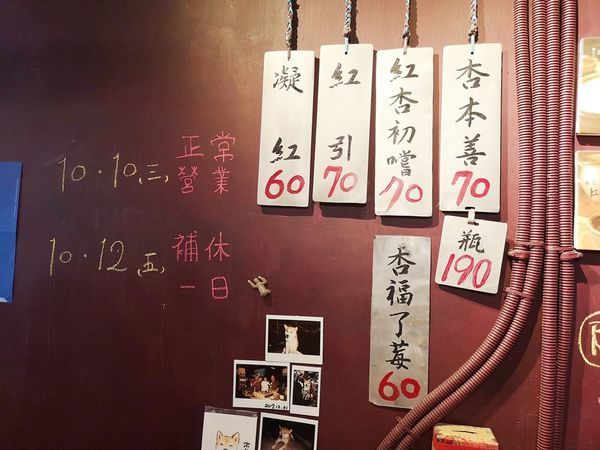 10.10(三) 正常
營業
10.12(五) 補休
一日
凝紅
60
紅引
70
紅杏初嚐
70
杏本善
70
瓶
190
杏福了莓
60
2017.12.31